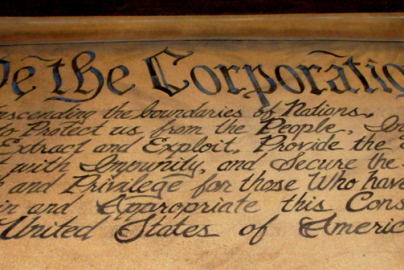 We the Corporatio
nscending the boundaries of Nations,
to Protect us from the People, In
Extract and Exploit, Provide the
with Impunity, and Secure the
and Privilege for those Who have
in and Appropriate this Cons
United States of Americ